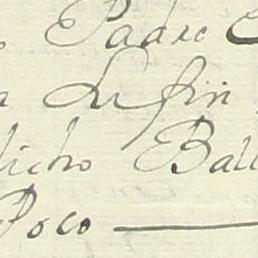 Padre
su fin
dicho Ball
Poco